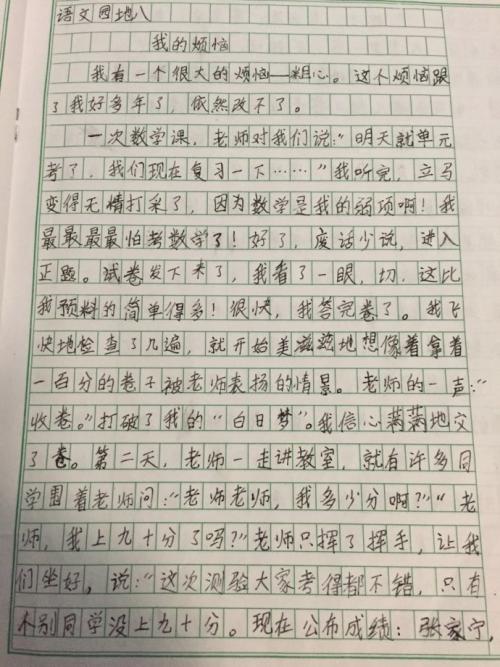 语文园地八
我的烦恼
我有一个很大的烦恼—粗心。这个烦恼跟
了我好多年了，依然改不了。
一次数学课，老师对我们说：“明天就单元
考了，我们现在复习一下……”我听完，立马
变得无情打采了，因为数学是我的弱项啊！我
最最最最怕考数学了！好了，废话少说，进入
正题。试卷发下来了，我看了一眼，切，这比
我预料的简单得多！很快，我答完卷了。我飞
快地检查了几遍，就开始美滋滋地想像着拿着
一百分的卷子被老师表扬的情景。老师的一声：“
收卷。”打破了我的“白日梦”。我信心满满地交
了卷。第二天，老师一走讲教室，就有许多同
学围着老师问：“老师老师，我多少分啊？”“老
师，我上九十分了吗？”老师只挥了挥手，让我
们坐好，说：“这次测验大家考得都不错，只有
个别同学没上九十分。现在公布成绩：张家宁，